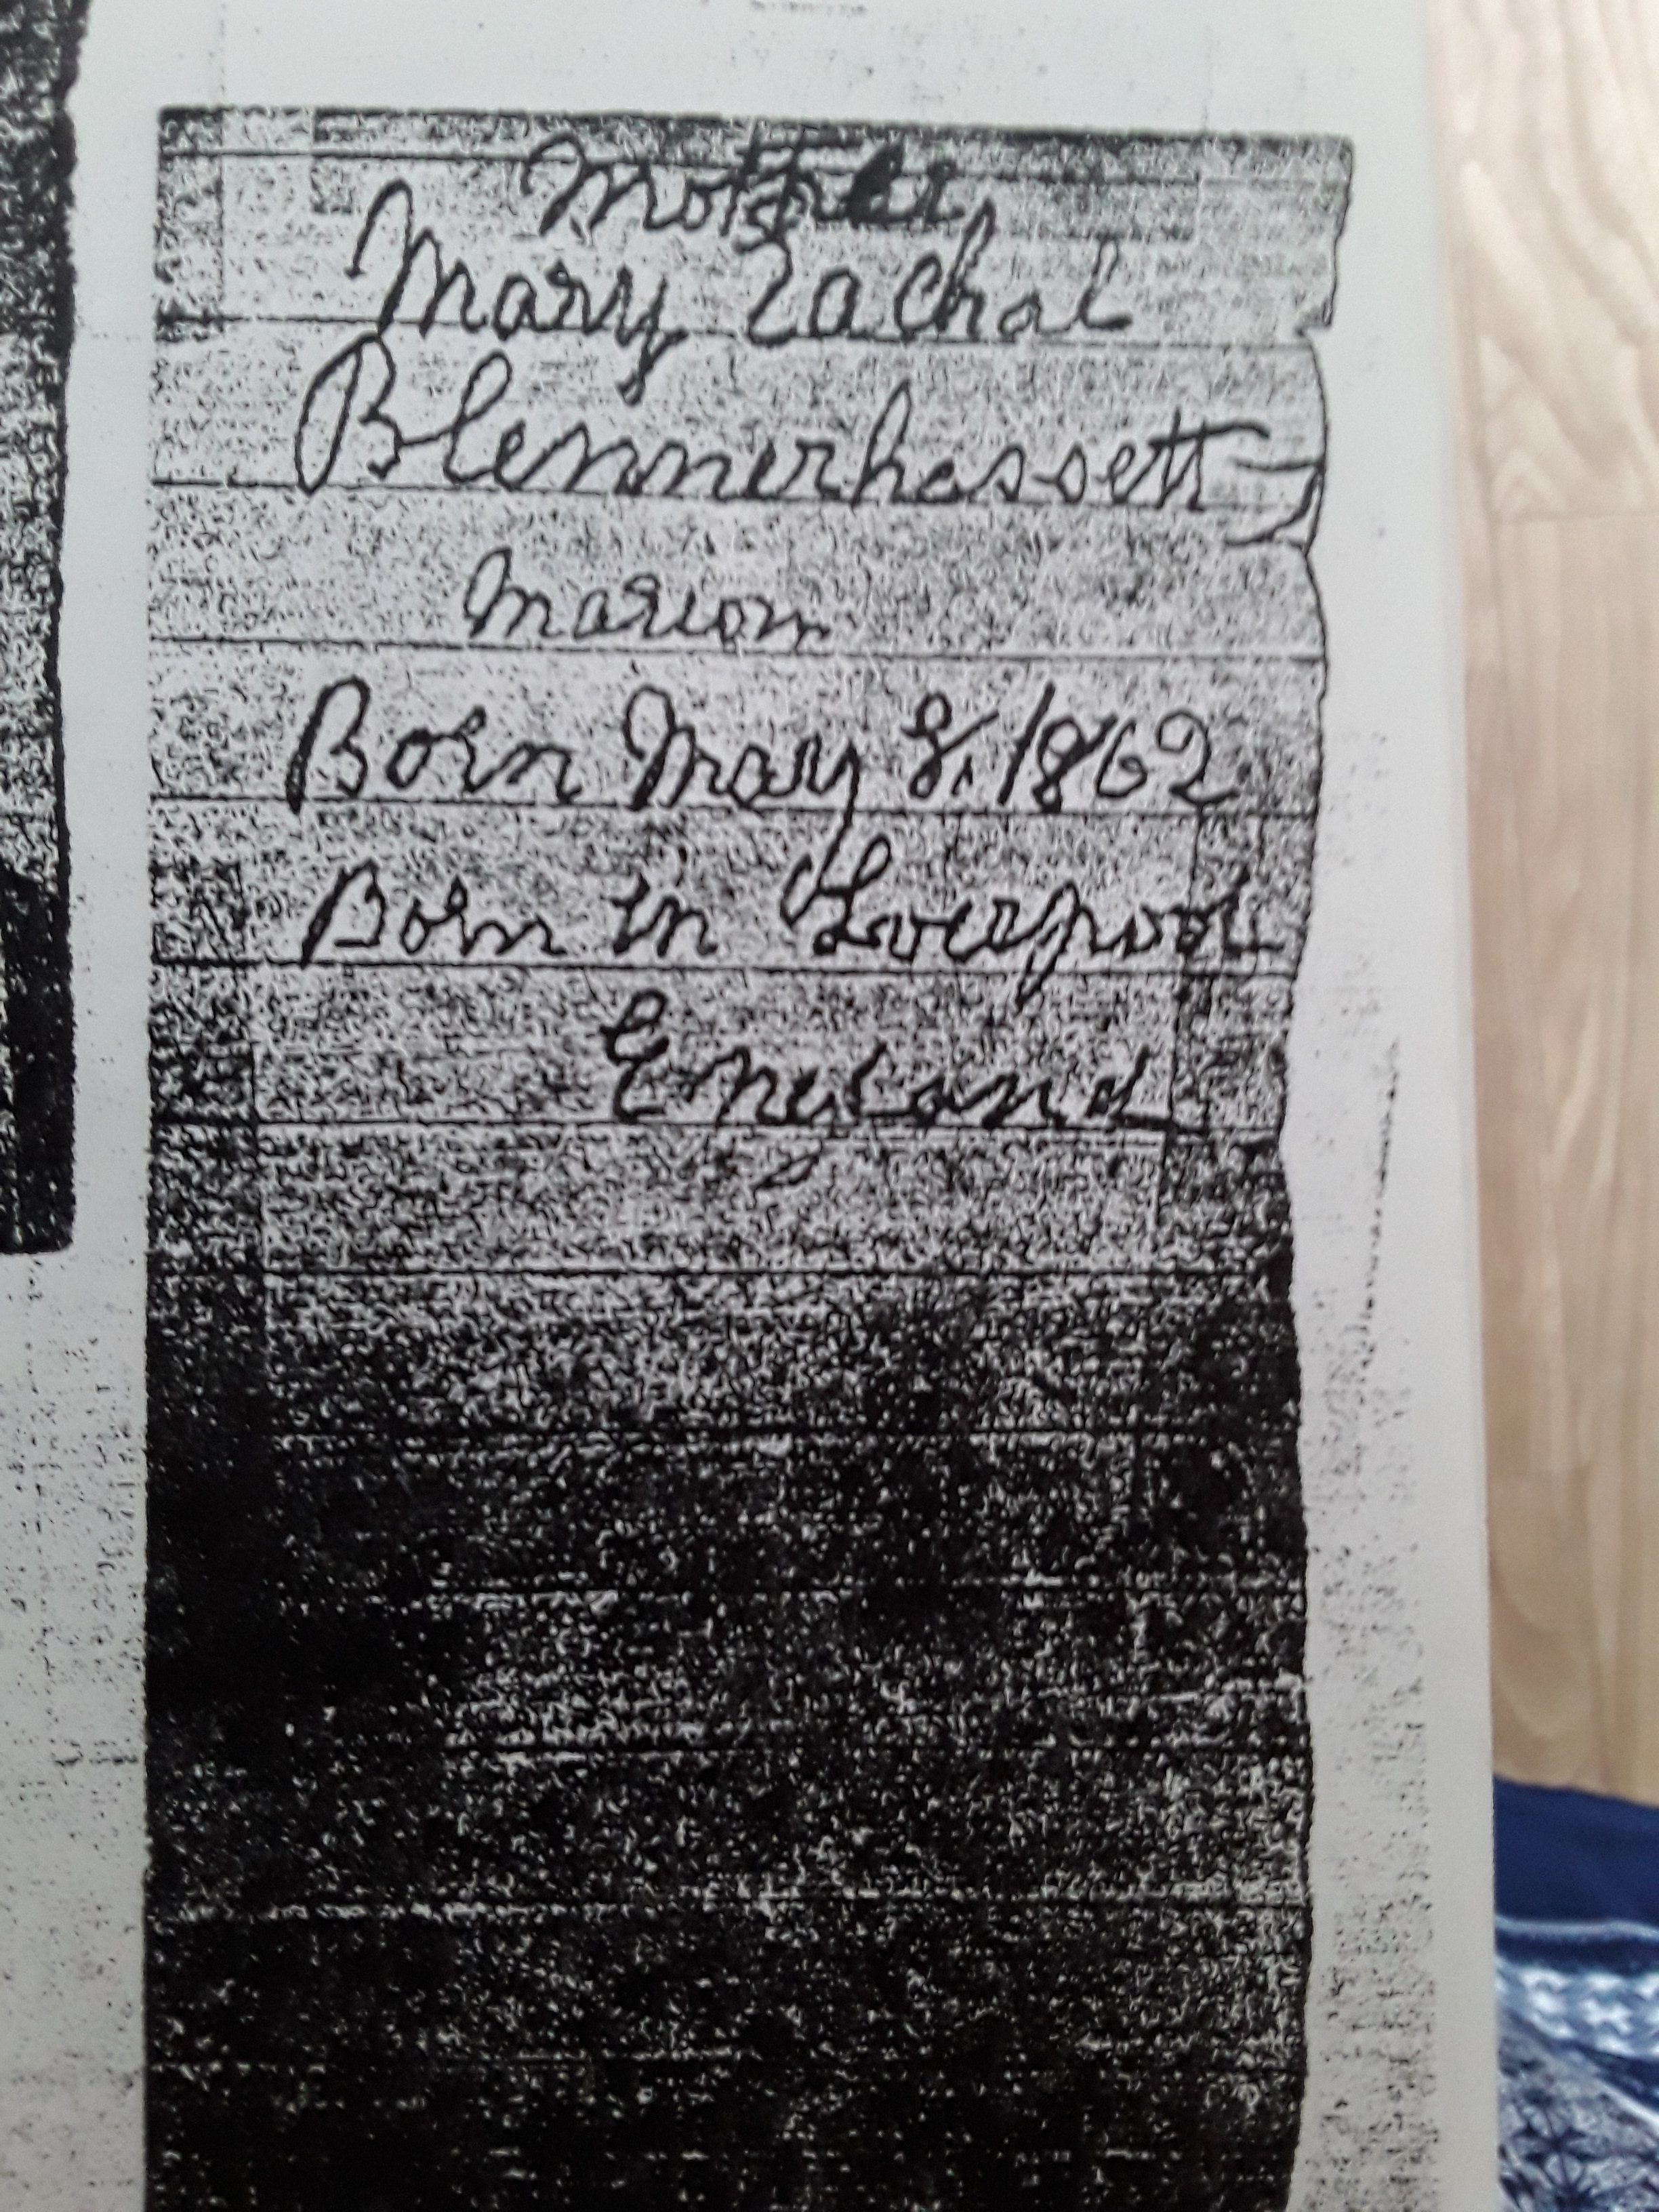 Mother,
Mary Rachal
Blennerhassett
Marion
Born May 8, 1862
Born in Liverpool
England